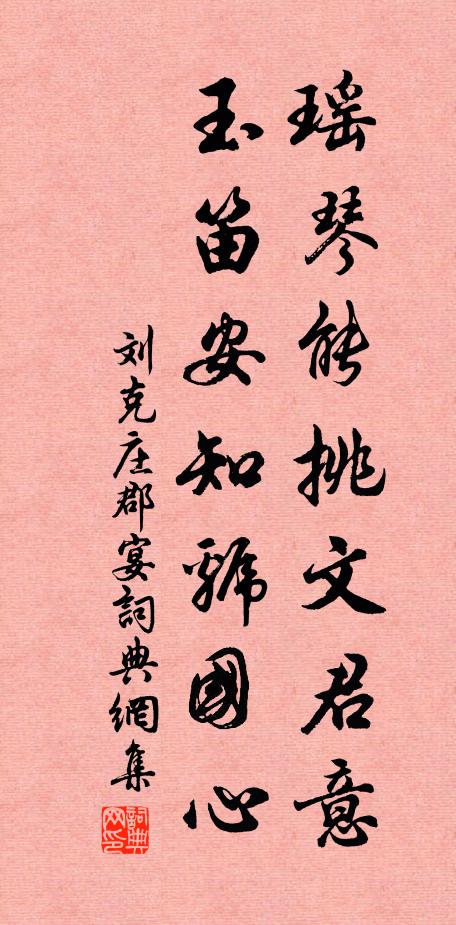 瑶琴能挑文君意
玉笛安知虢國心
刘克庄郡宴詞典網集
詞典网印